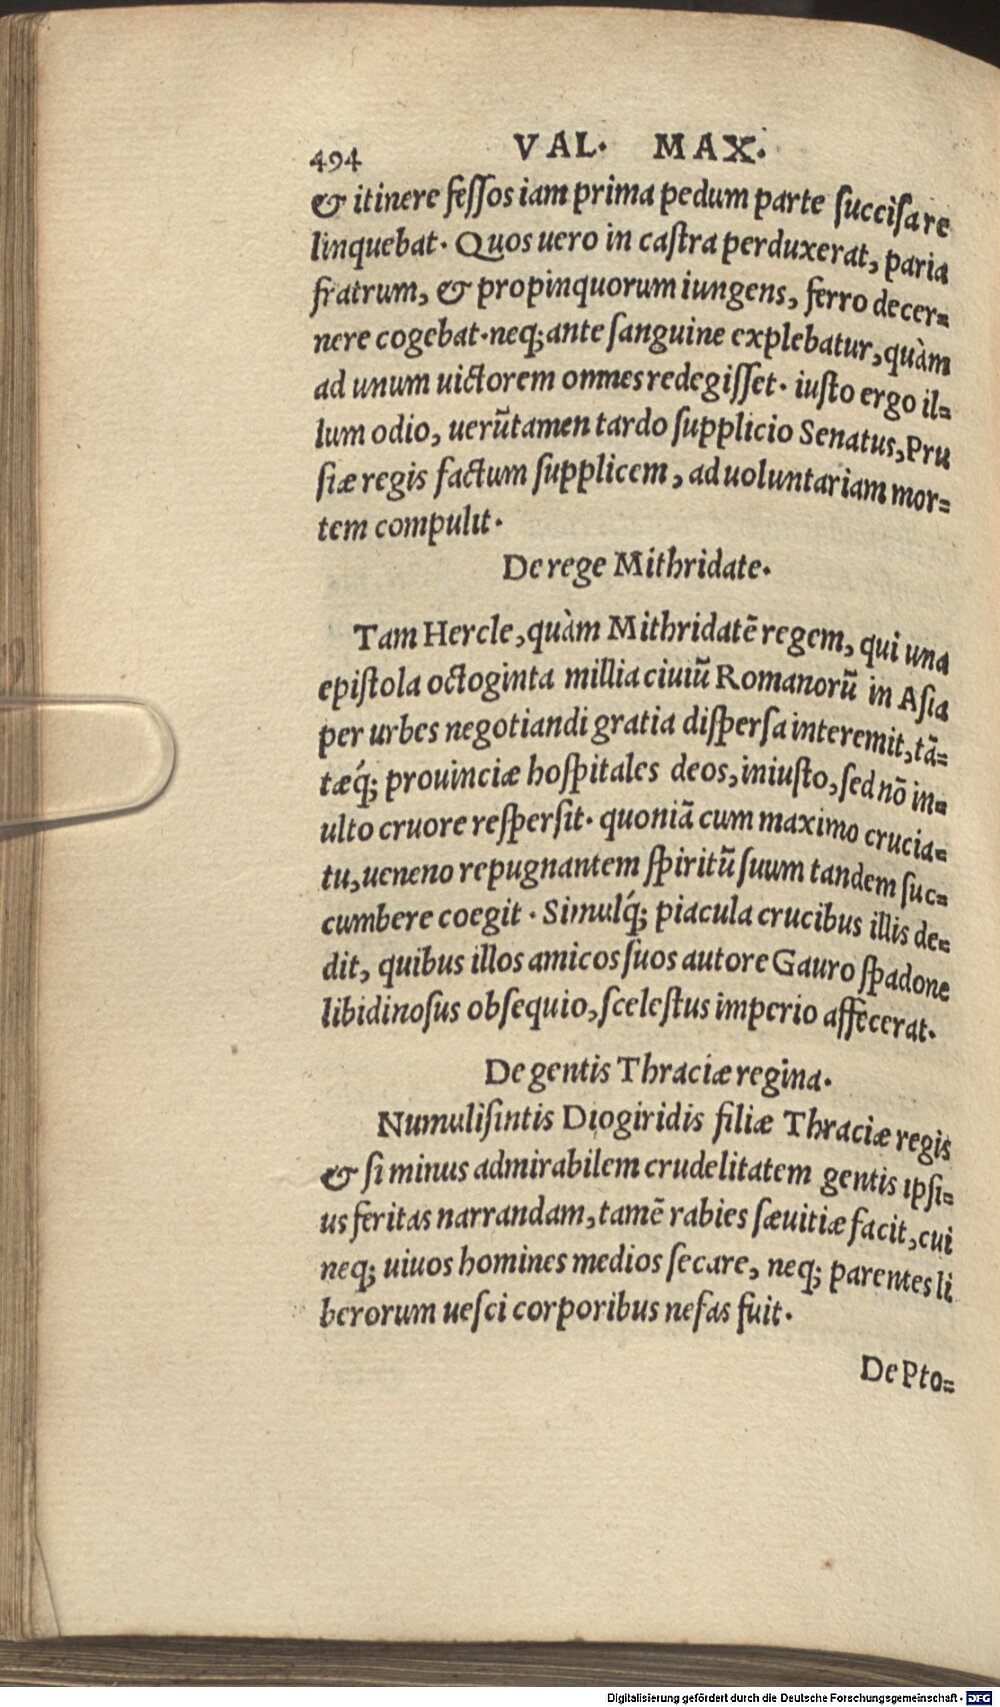 494 VAL. MAX.
& itinere feſſos iam prima pedum parte ſucciſa re
linquebat. Quos uero in caſtra perduxerat, paria
fratrum, & propinquorum iungens, ferro decer=
nere cogebat. neq; ante ſanguine explebatur, quàm
ad unum uictorem omnes redegiſſet. iuſto ergo il=
lum odio, uerũtamen tardo ſupplicio Senatus, Pru
ſiæ regis factum ſupplicem, ad uoluntariam mor=
tem compulit.
De rege Mithridate.
Tam Hercle, quàm Mithridatẽ regem, qui una
epiſtola octoginta millia ciuiũ Romanorũ in Aſia
per urbes negotiandi gratia diſperſa interemit, tã=
tæq́; prouinciæ hoſpitales deos, iniuſto, ſed nõ in=
ulto cruore reſperſit. quoniã cum maximo crucia=
tu, ueneno repugnantem ſpiritũ ſuum tandem ſuc=
cumbere coegit. Simulq́; piacula crucibus illis de=
dit, quibus illos amicos ſuos autore Gauro ſpadone
libidinoſus obſequio, ſceleſtus imperio affecerat.
De gentis Thraciæ regina.
Numuliſintis Diogiridis filiæ Thraciæ regis
& ſi minus admirabilem crudelitatem gentis ipſi=
us feritas narrandam, tamẽ rabies ſæuitiæ facit, cui
neq; uiuos homines medios ſecare, neq; parentes li
berorum ueſci corporibus nefas fuit.
De Pto=
Digitalisierung gefördert durch die Deutsche Forschungsgemeinschaft - DFG